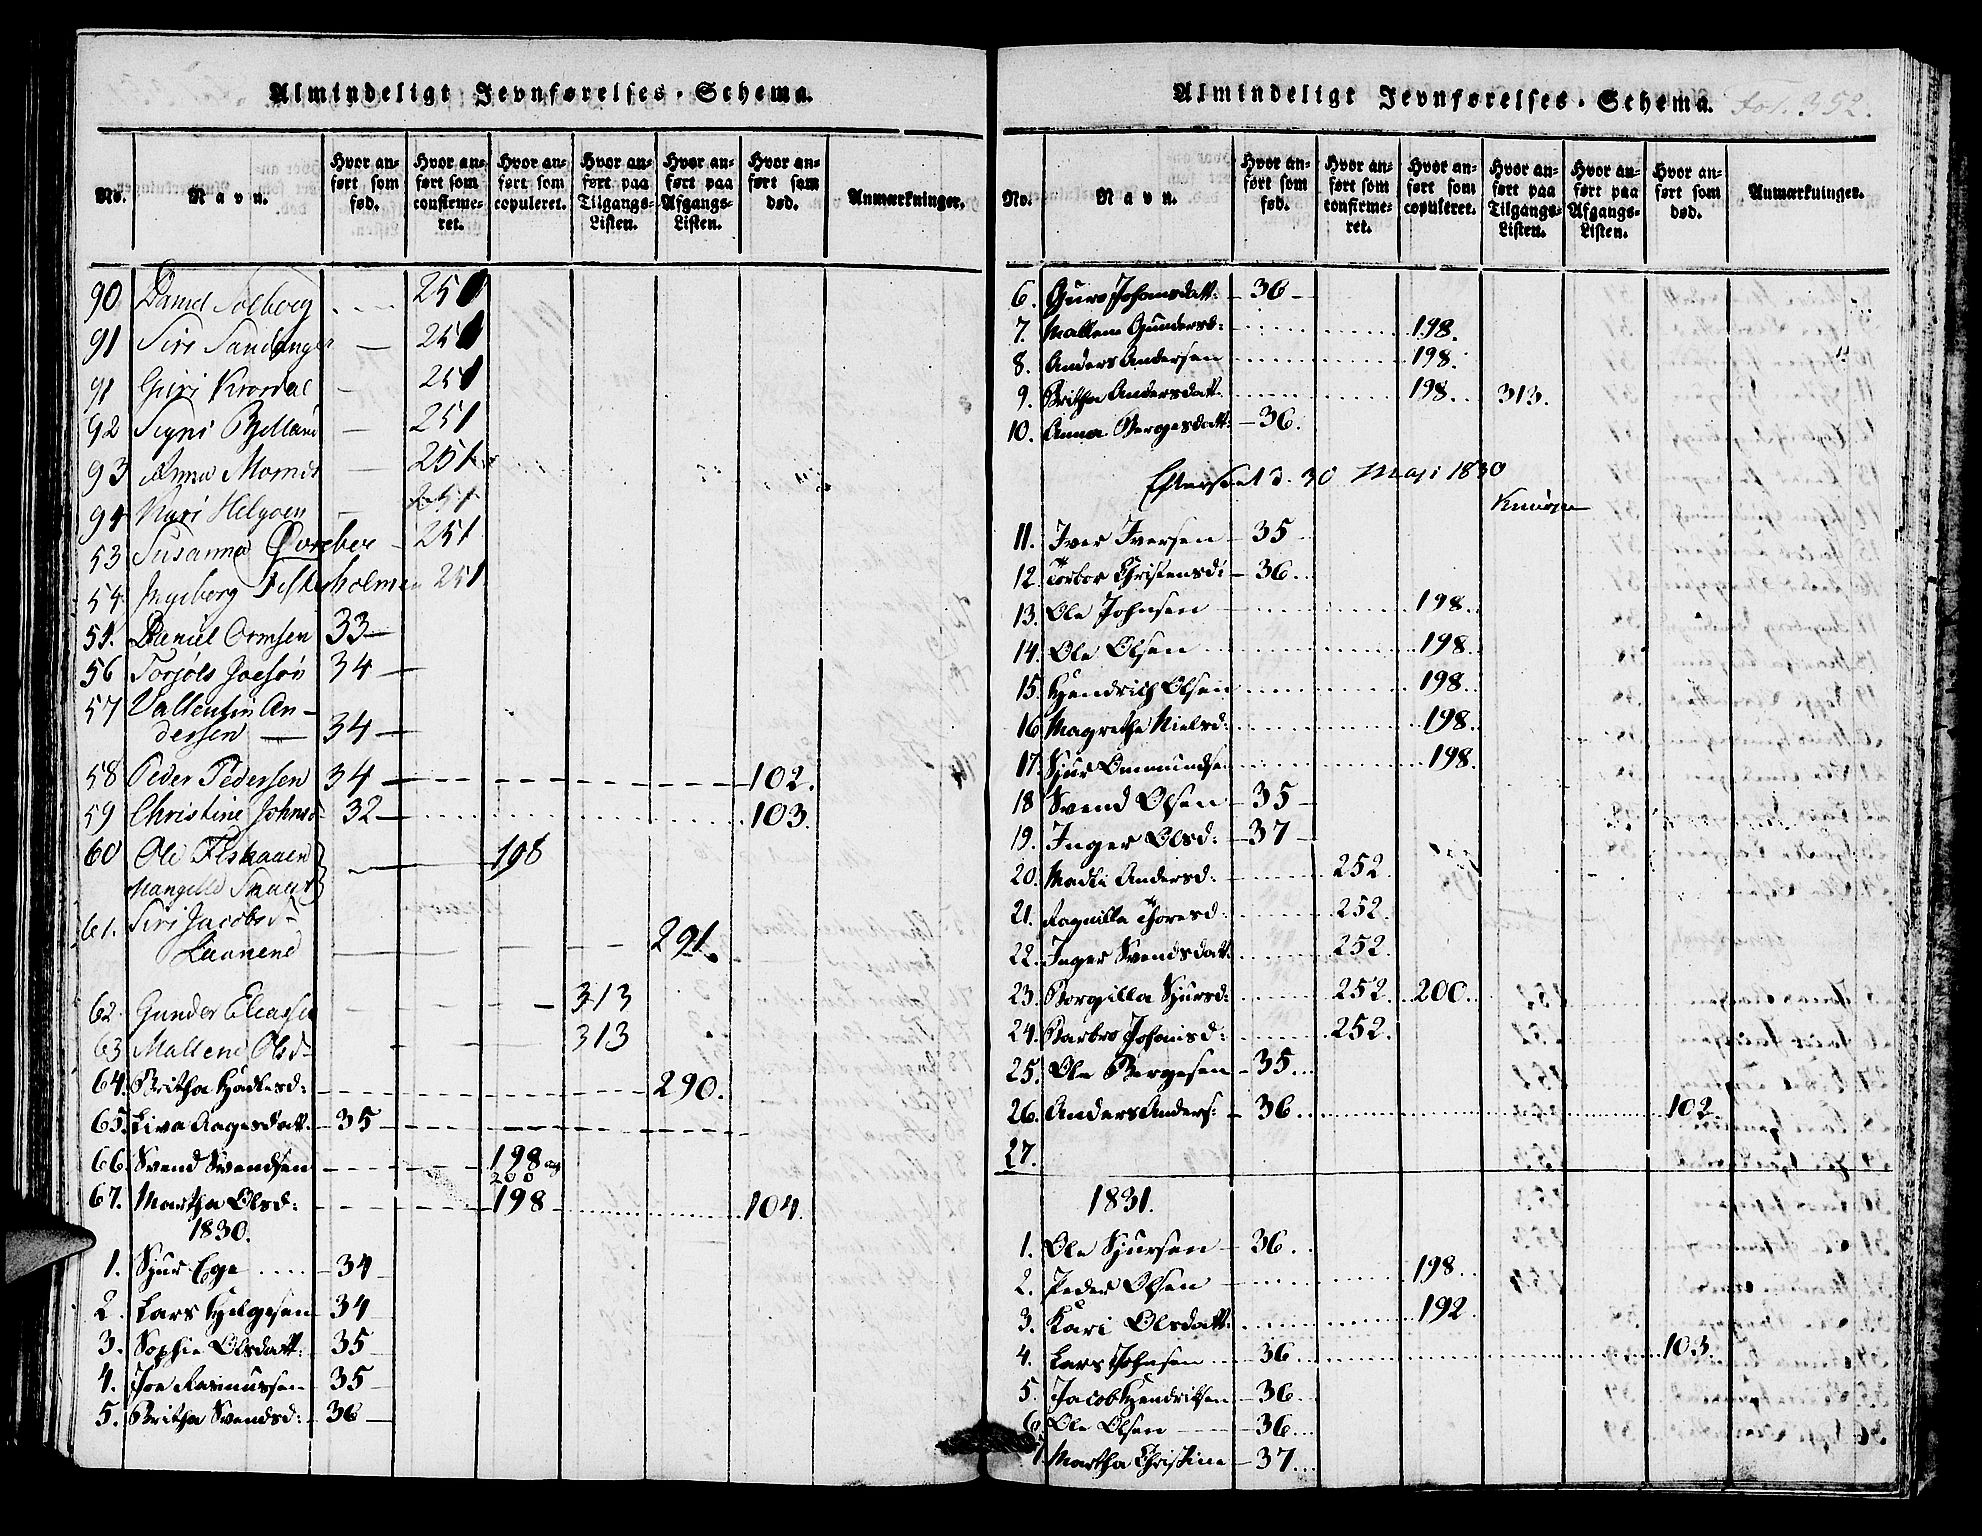 Almindeligt Jevnførelses-Schema.
No.
Navn.
Hvor anført som fød.
Hvor anført som confirmeret.
Hvor anført som copuleret.
Hvor anført paa Tilgangs-Listen.
Hvor anført paa Afgangs-Listen.
Hvor anført som død.
Anmærkninger.
90 Daniel Solberg 251
91 Siri Sandanger — 251
91 Giøri Krordal — 251
92 Signi Bjelland — 251
93 Anna Mornes — 251
94 Kari Helgøen — 251
53 Susanna Øvrebøe — 251
54 Ingeborg Fiskeholmen 251
51. Daniel Ormsen 33—
56 Torjøls Joesøn 34 —
57 Vallentin An-
dersen — 34—
58 Peder Pedersen 34 — 102.
59 Christine Johnsd 32— 103.
60 Ole Fiskaaen — 198
61. Siri Jacobsd
Launene 291.
62. Gunder Eliassen 313
63 Mallene Olsd 313
64. Britha Hadlesd: 290.
65. Liva Aagesdatt. 35
66. Svend Svendsen 198 og
200
67. Martha Olsd: 198 104
1830.
1. Sjur Ege .... 34
2. Lars Helgesen 34
3. Sophie Olsdatt: 35
4. Joe Rasmussen 35
5. Britha Svendsd: 36
Almindeligt Jevnførelses-Schema. fol. 352.
No.
Navn.
Hvor anført som fød.
Hvor anført som confirmeret.
Hvor anført som copuleret.
Hvor anført paa Tilgangs-Listen.
Hvor anført paa Afgangs-Listen.
Hvor anført som død.
Anmærkninger.
6. Guro Johansdatt: — 36 —
7. Mallene Gundersd: 198.
8. Anders Andersen 198.
9. Britha Andersdatt. 198. 313.
10. Anna Bergesdatt: — 36.
Efterseet d. 30 Maji 1830
11. Iver Iversen — 35
12. Torbor Christensd: — 36.
13. Ole Johnsen 198.
14. Ole Olsen 198.
15. Hendrich Olsen 198.
16. Magrethe Nielsd: 198.
17. Sjur Ommundsen 198.
18 Svend Olsen — 35 —
19. Inger Olsd: — 37 —
20. Madli Andersd: 252
21. Ragnilla Thoresd: 252.
22. Inger Svendsdatt 252.
23. Borgilla Sjursd: 252. 200.
24. Barbro Johansd: 252.
25. Ole Bergesen — 35.
26. Anders Anders: — 36. 102.
27.
1831.
1. Ole Sjursen — 36.
2. Peder Olsen 198.
3. Kari Olsdatt: 192
4. Lars Johnsen — 36. 103.
5. Jacob Hendriksen — 36
6. Ole Olsen — 36.
7. Martha Christine — 37.